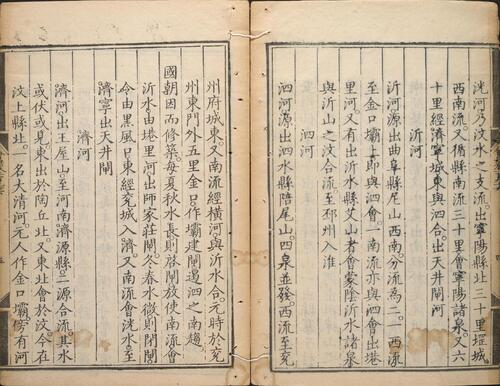 洸河乃汶水之支流。出寧陽縣北三十里堽城
西南流。又循縣南三十里會寧陽諸泉。又六
十里經濟寧城東與泗合。出天井閘河
沂河
沂河源出曲阜縣尼山西南。分流為二。一西流
至金口壩上即與泗會。一南流亦與泗會出塂
里河又有出沂水縣艾山者會蒙陰沂水諸泉
與沂山之汶合流至邳州入淮
泗河
泗河源出泗水縣陪尾山。四泉並發。西流至兖
州府城東。又南流經橫河與沂水合。元時於兖
州東門外五里金口作壩建閘遏泗之南趨
國朝因而修築。每夏秋水長則啓閘放使南流會
沂水由塂里河出師家莊閘。冬春水微則閉閘
令由黑風口東經兖城入濟。又南流會洸水至
濟寧出天井閘
濟河
濟河出王屋山至河南濟源縣二源合流。其水
或伏或見。東出於陶丘北。又東北會於汶。今在
汶上縣北。一名大清河。元人作金口壩傍有河